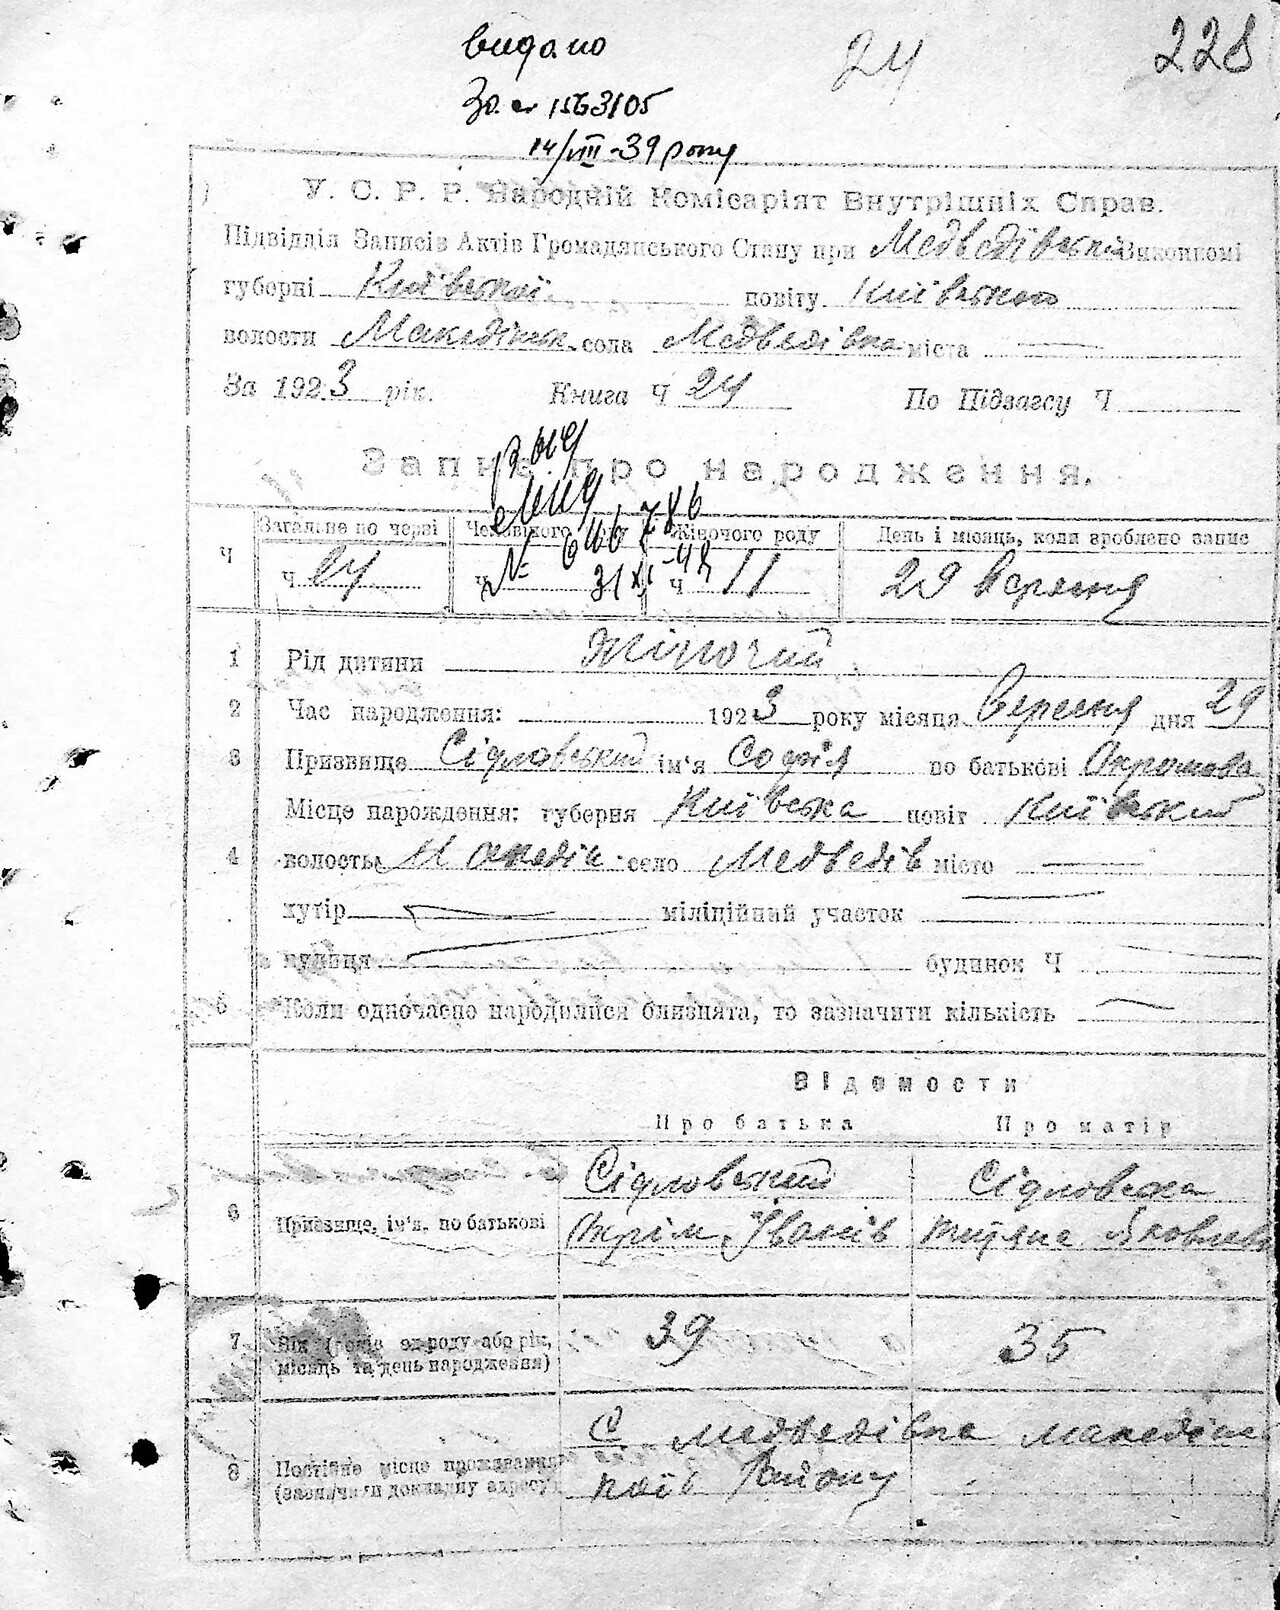 видано
24
228
За № 1563105
14/VIII-39 року
У. С. Р. Р. Народній Комісаріят Внутрішніх Справ.
Підвідділ Записів Актів Громадянського Стану при Медведівській Виконкомі
губерні Київської повіту Київського
волости Македінськ. села Медведівка міста —
За 1923 рік. Книга Ч 24 По Підзагсу Ч
Запис про народження.
Ч Загальне по черзі Чоловічого роду Жіночого роду День і місяць, коли зроблено запис
№ 646786
ч 24 ч ч 11 29 вересня
1 Рід дитини Жіночий
2 Час народження: 1923 року місяця Вересня дня 29
3 Призвище Сідловський ім'я Софія по батькові
Місце народження: губерня Київська повіт Київський
4 волость Македін село Медведів місто —
хутір — міліційний участок —
вулиця — будинок Ч —
5 Коли одночасно народилися близнята, то зазначити кількість —
Відомости
Про батька Про матір
Сідловський Сідловска
6 Призвище, ім'я, по батькові Охрім Іванів Титяна Яковлева
7 Вік (років од роду або рік, 39 35
місяць та день народження)
С Медведівка Македінс
8 Постійне місце проживання
(зазначити докладну адресу) Району